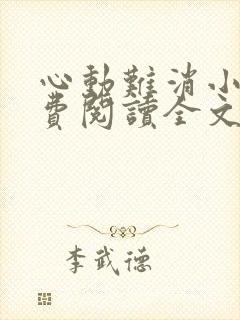 心動難消小
費閱讀全文
李武德